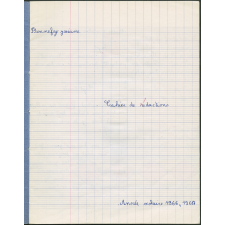 Bonnefoy
Cahier de rédactions
Année scolaire 1966, 1968